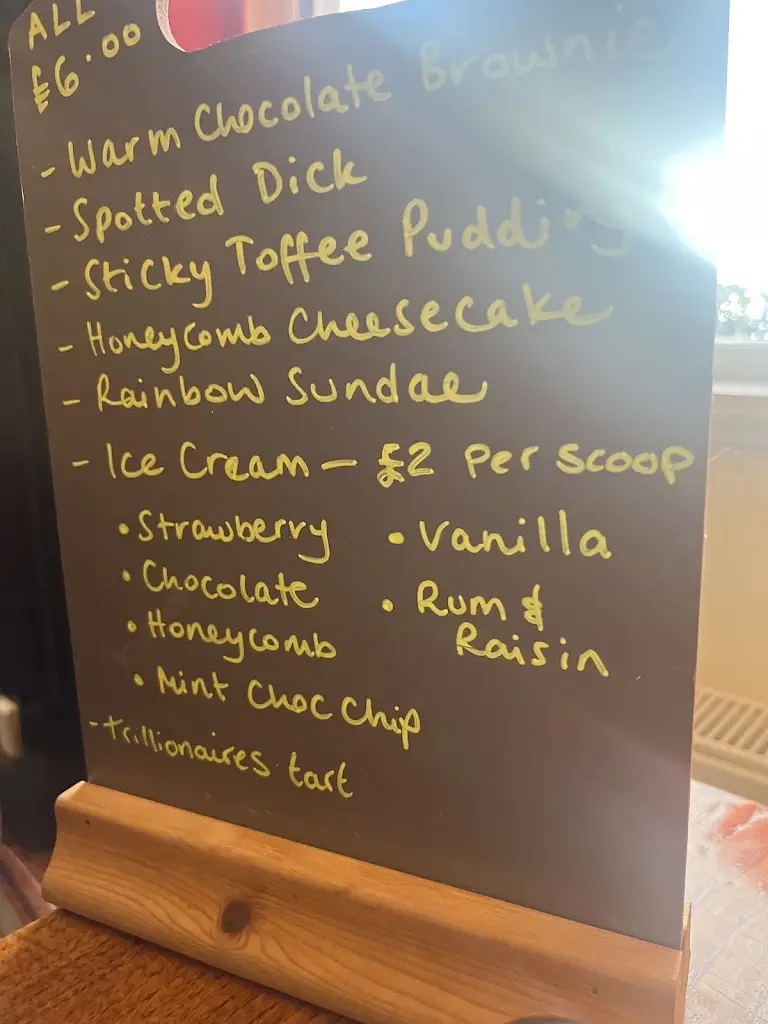 ALL
£6.00
- Warm Chocolate Brownie
- Spotted Dick
- Sticky Toffee Pudding
- Honeycomb Cheesecake
- Rainbow Sundae
- Ice Cream - £2 per scoop
• Strawberry • Vanilla
• Chocolate • Rum &
Raisin
• Honeycomb
• Mint Choc Chip
- trillionaires tart